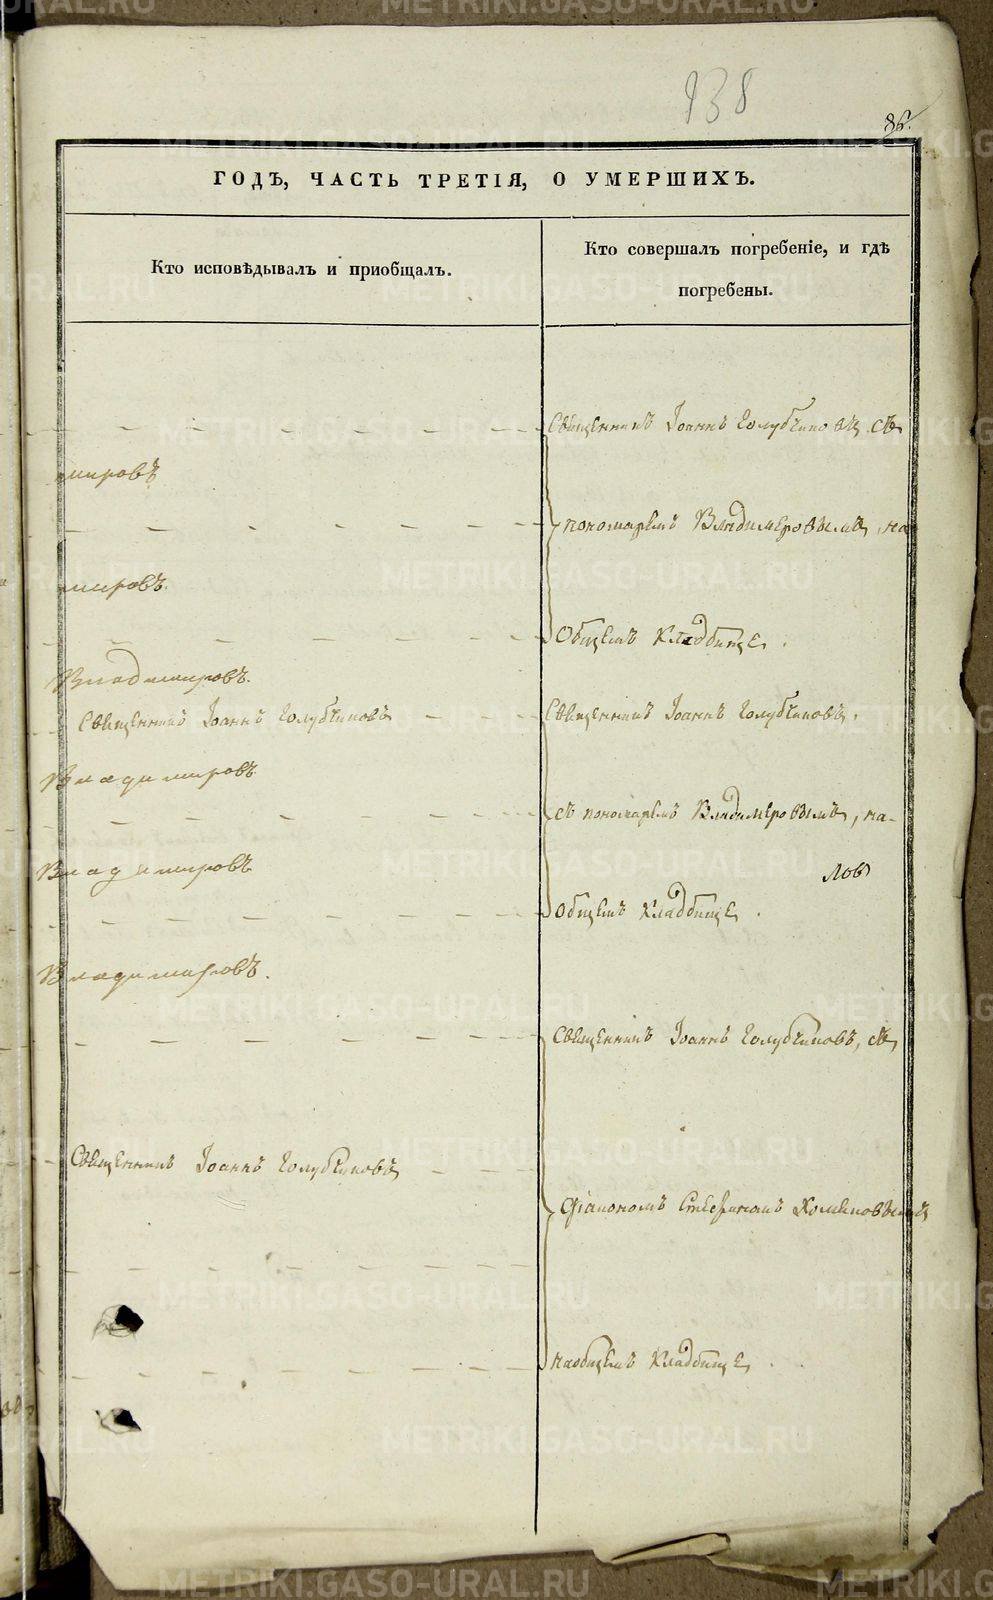 138
86.
ГОДЪ, ЧАСТЬ ТРЕТІЯ, О УМЕРШИХЪ.
Кто исповѣдывалъ и пріобщалъ.
Кто совершалъ погребеніе, и гдѣ
погребены.
Священникъ Іоаннъ Голубчиковъ съ
мировъ
пономаремъ Владимеровымъ, на
мировъ.
Общемъ Кладбище.
Владимировъ.
Священникъ Іоаннъ Голубчиковъ
Священникъ Іоаннъ Голубчиковъ.
Владимировъ
съ пономаремъ Владимеровымъ, на-
Владимировъ
лов
Общемъ Кладбище.
Владимировъ.
Священникъ Іоаннъ Голубчиковъ, съ
Священникъ Іоаннъ Голубчиковъ
Діакономъ Стефаномъ Хомяковымъ
на общемъ Кладбище.
METRIKI.GASO-URAL.RU